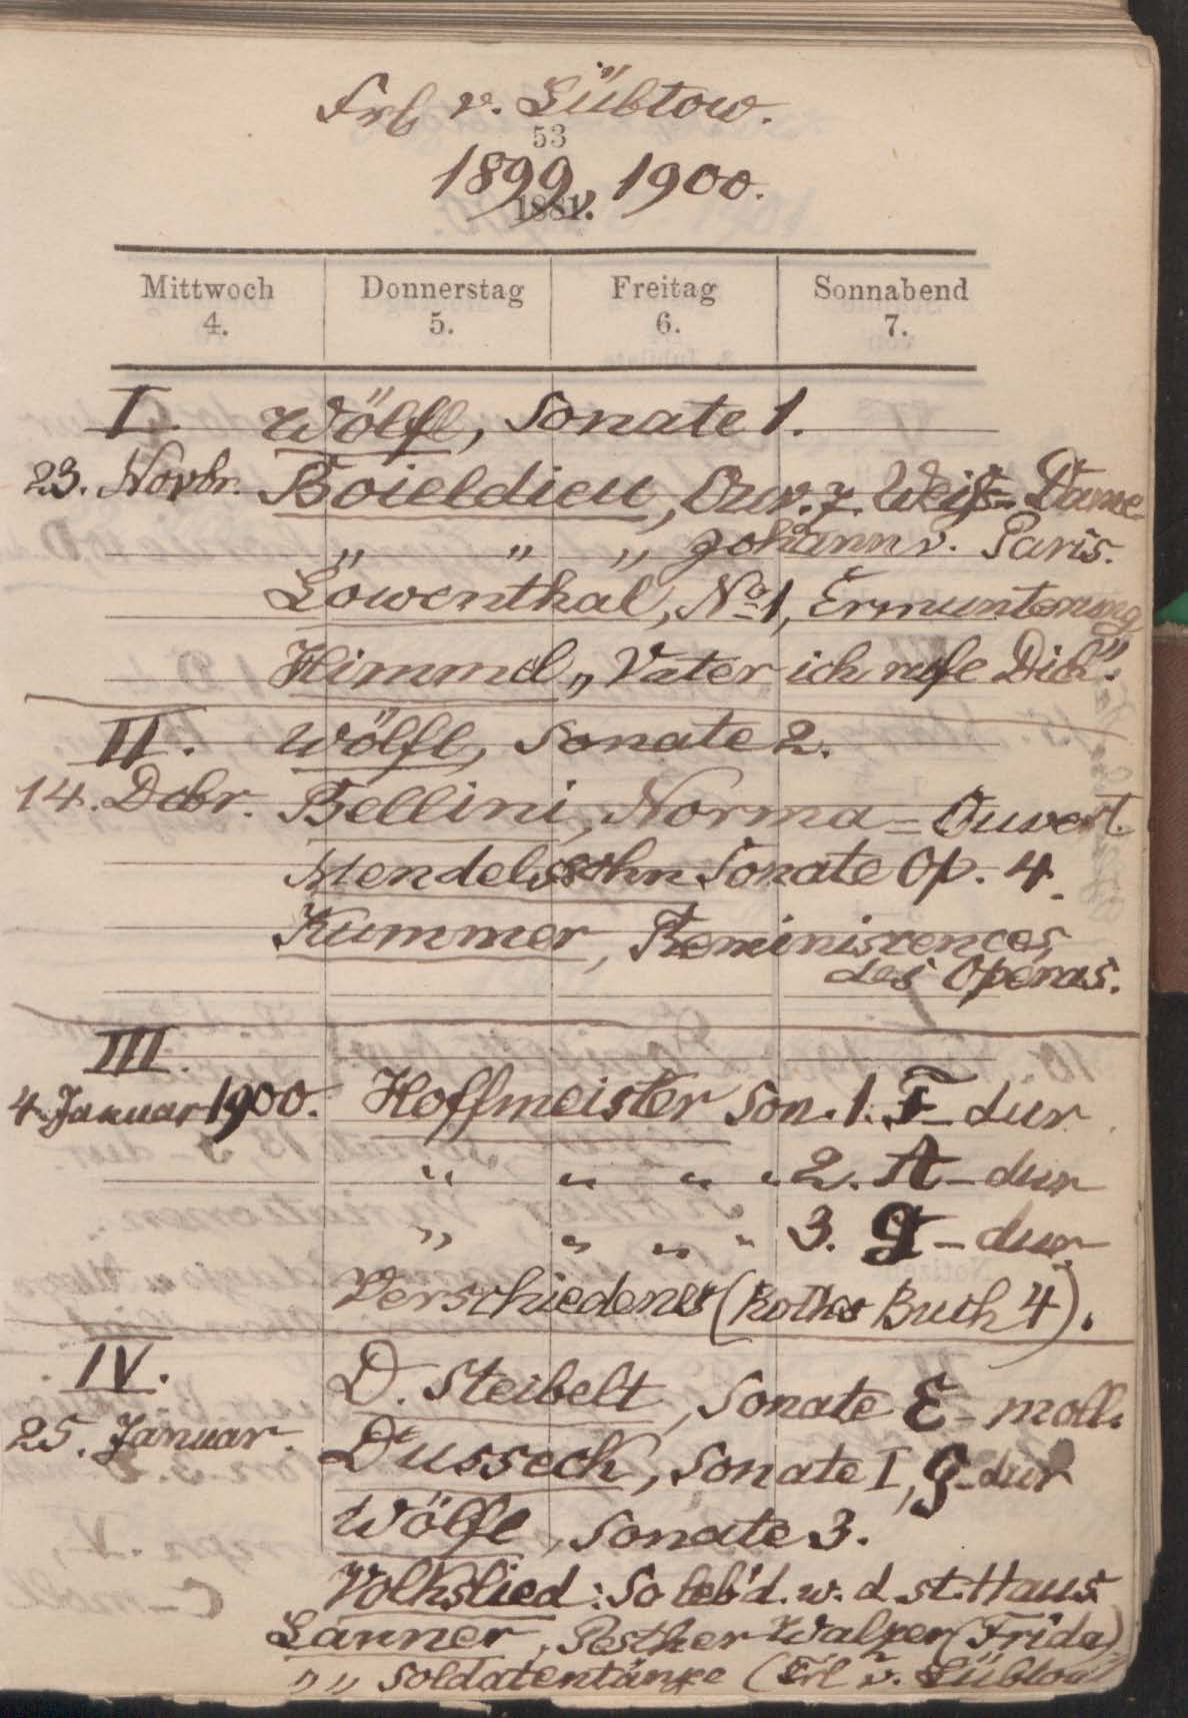 Frl v. Lübtow.
53
1899, 1900.
1881.
Mittwoch Donnerstag Freitag Sonnabend
4. 5. 6. 7.
I. Wölfl, Sonate 1.
23. Novbr. Boieldieu, Ouv. z. Weiß-Dame
„ „ „ Johann v. Paris.
Löwenthal, No 1, Ermunterung
Himmel „Vater ich rufe Dich".
II. Wölfl, Sonate 2.
14. Dcbr. Bellini, Norma=Ouvert.
Mendelssohn Sonate Op. 4.
Kummer, Reminiscences
des Operas.
III.
4. Januar 1900. Hoffmeister Son. 1. F-dur
„ „ „ „ 2. A-dur
„ „ „ „ 3. G-dur
Verschiedenes (Rothes Buch 4).
IV. D. Steibelt, Sonate E-moll.
25. Januar. Dusseck, Sonate I, G-dur
Wölfl, Sonate 3.
Volkslied: So leb' d. w. d. st. Haus
Lanner, Pesther Walzer (Frida)
„ „ Soldatentänze (Frl v. Lübtow)